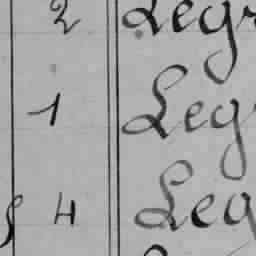 2 Legr
1 Leg
4 Leg